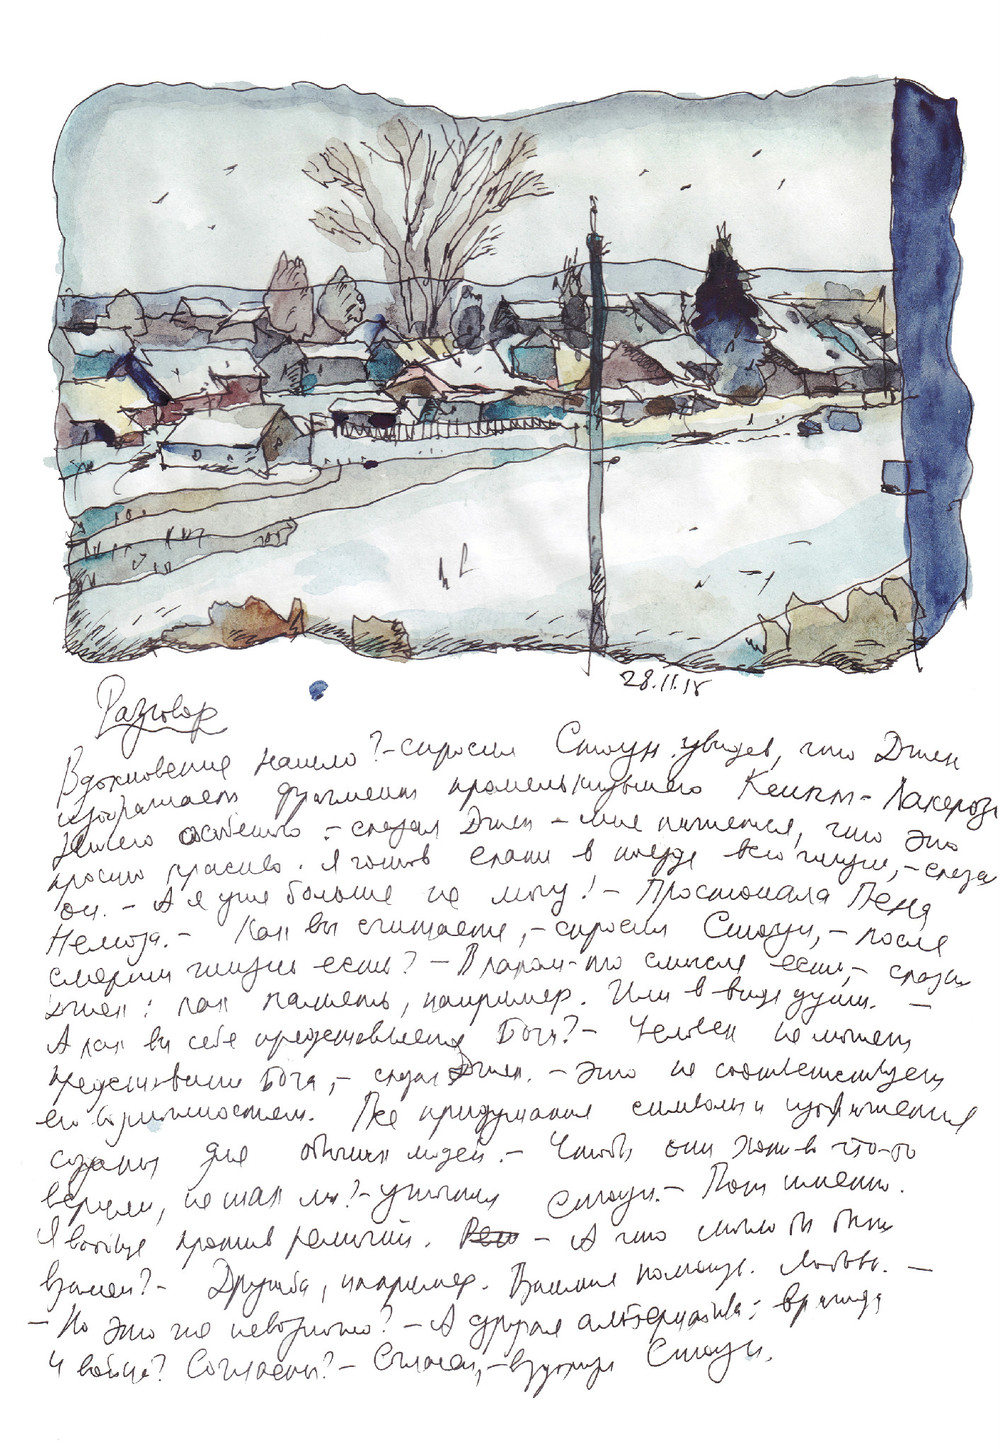 28.11.18
Разговор
Вдохновение нашло? - спросил Стоун, увидев, что Джен
изображает фрагмент промелькнувшего
Ничего особенного - сказал Джен - мне кажется, что это
просто красиво. Я готов ехать в поезде всю жизнь, - сказал
он. - А я уже больше не могу! - Простонала Пеня
Немоза. - Как вы считаете, - спросил Стоун, - после
смерти жизнь есть? - В каком-то смысле есть, - сказал
Джен: как память, например. Или в виде души. -
А как вы себе представляете Бога? - Человек не может
представить Бога, - сказал Джен. - Это не соответствует
его возможностям. Все придуманные символы и изображения
созданы для обычных людей. - Чтобы они хоть в что-то
верили, не так ли? - уточнил Стоун. - Вот именно.
Я вообще против религий. - А что могло бы быть
взамен? - Дружба, например. Взаимная помощь. Любовь. -
- Но это же невозможно? - А другая альтернатива: вражда
и война? Согласны? - Согласен, - вздохнул Стоун.